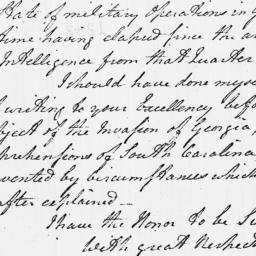 State of military Operations in G
time having elapsed since the a
Intelligence from that Quarter
I should have done myse
f writing to your Excellency befo
bject of the Invasion of Georgia,
prehensions of South Carolina
vented by circumstances which
after explained —
I have the Honor to be Si
With great Respect